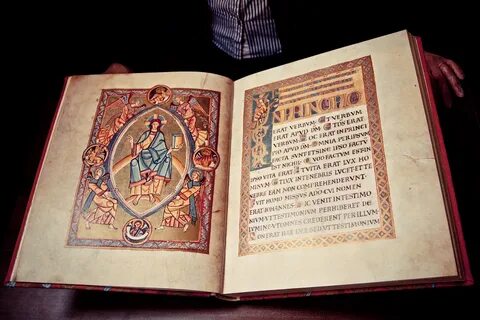 IN PRINCIPIO
ERAT VERBUM ET VERBUM
ERAT APVD DM ET DS ERAT
VERBUM HOC ERAT IN PRINCI
PIO APVD DM OMNIA PER IPSUM
FACTA SUNT ET SINE IPSO FACTU
EST NICHIL QVOD FACTUM EST IN
IPSO VITA ERAT ET VITA ERAT LVX HO
MINUM ET LVX IN TENEBRIS LVCET ET TE
NEBRE EAM NON COMPREHENDERVNT
VIT HOMO MISSUS A DEO CVI NOMEN
ERAT IOHANNES HIC VENIT IN TESTIMO
NIVM VT TESTIMONIVM PERHIBERET DE
LVMINE VT OMNES CREDERENT PER ILLUM
ERAT